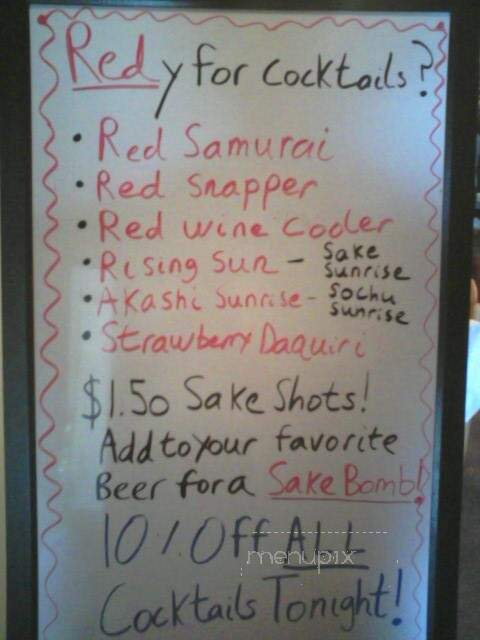 Redy for Cocktails?
• Red Samurai
• Red Snapper
• Red wine Cooler
• Rising Sun - Sake Sunrise
• Akashi Sunrise - Sochu Sunrise
• Strawberry Daquiri
$1.50 Sake Shots!
Add to your favorite
Beer for a Sake Bomb!
10% Off ALL
menupix
Cocktails Tonight!